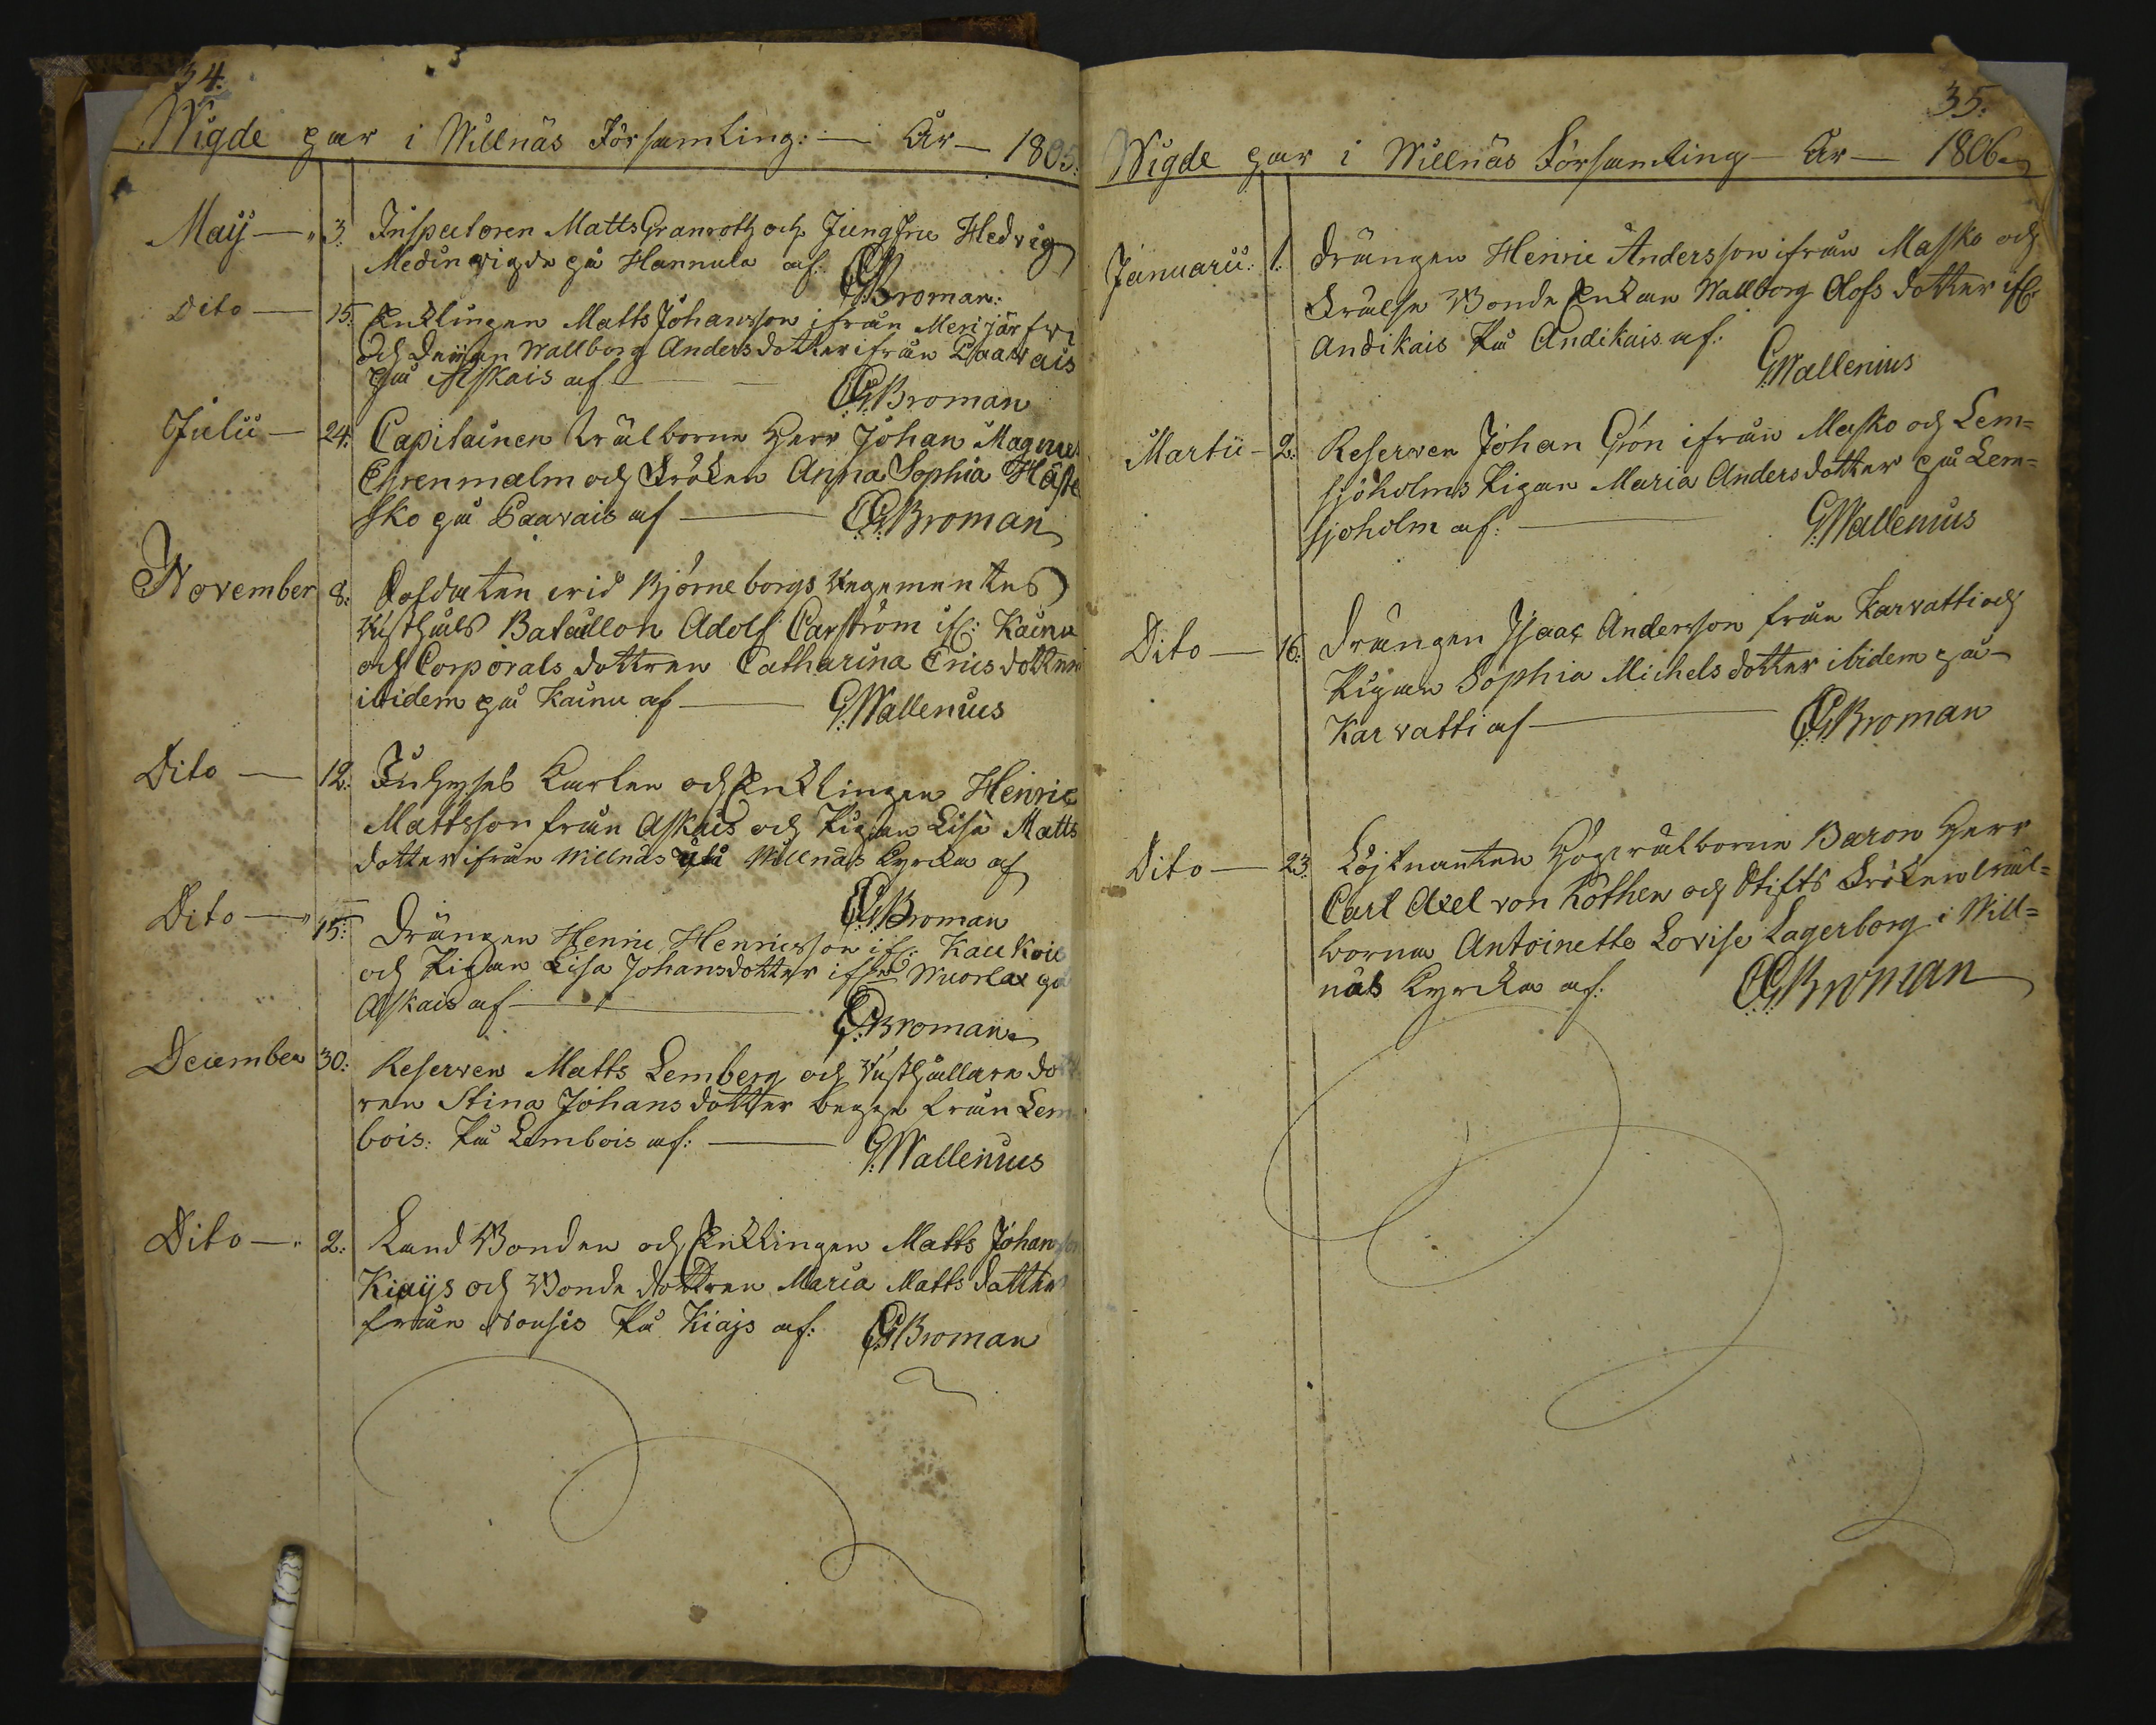 34.
Wigde par i Willnäs Församling: — År — 1805.
May — 3. Inspectoren Matts Granroth och Jungfru Hedvig
Medin wigde på Hannula af:
CG Broman:
Dito — 15. Enklingen Matts Johansson ifrån Merijärfwi
och Pigan Wallborg Andersdotter ifrån Paavais
på Askais af — CG Broman
Julii — 24. Capitainen Wälborne Herr Johan Magnus
Ehrenmalm och Fröken Anna Sophia Häste
sko på Paavais af — CG Broman
November 8: Soldaten wid Björneborgs Regementes
Rusthålls Bataillon Adolf Carström ifr: Kainu
och Corporals dottren Catharina Ericsdotter
ibidem på Kainu af — G: Wallenius
Dito — 12. Inhyses Karlen och Enklingen Henric
Mattsson från Askais och Pigan Lisa Matts
dotter ifrån Willnäs uti Willnäs Kyrcka af
CG Broman
Dito — 15: Drängen Henric Henricsson ifr: Kaukois
och Pigan Lisa Johansdotter ifrån Wuorlax på
Askais af — CG Broman
December 30: Reserven Matts Lemberg och Rusthållare dott
ren Stina Johansdotter begge från Lem
bois: På Lembois af: — G: Wallenius
Dito — 2: Land Bonden och Enklingen Matts Johansson
Kiaijs och Bonde dottren Maria Matts dotter
från Nousis På Kiajs af: CG Broman
35.
Wigde par i Willnäs Församling — År — 1806
Januarii. 1. Drängen Henric Andersson ifrån Masko och
Frälse Bonde Enkan Wallborg Olofs dotter ifr:
Andikais På Andikais af:
G: Wallenius
Martii — 2: Reserven Johan Grön ifrån Masko och Lem=
sjöholms Pigan Maria Andersdotter på Lem=
sjoholm af: — G: Wallenius
Dito — 16: Drängen Isaac Andersson från Karvatti och
Pigan Sophia Michelsdotter ibidem på
Karvatti af — CG Broman
Dito — 23. Löjtnanten Högwälborne Baron Herr
Carl Axel von Köthen och Stifts Fröken Wäl=
borna Antoinette Lovise Lagerborg i Will=
näs Kyrcka af: CG Broman